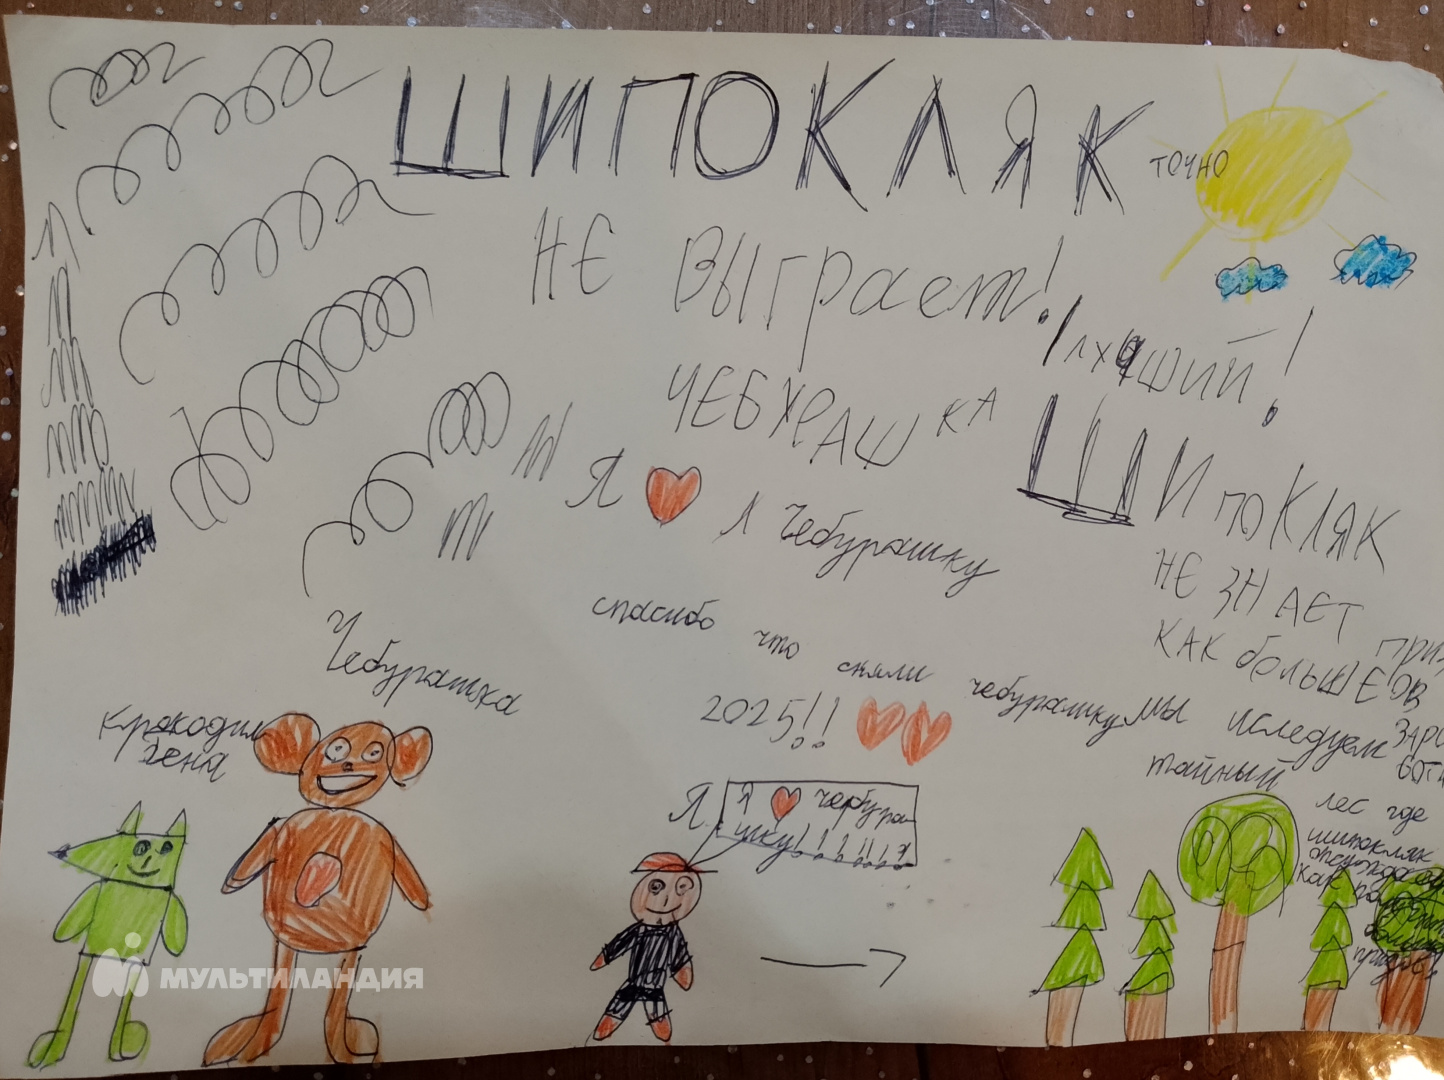 ШИПОКЛЯК
точно
НЕ выграет!
лхчший!
ЧЕБХРАШКА
Я Л Чебурашку
ШИПОКЛЯК
НЕ ЗНАЕТ
КАК больШЕ
спасибо что сняли чебурашку
2025!!
Чебурашка
крокодил
гена
мы иследуем
тайный
лес где
шипокляк
Как
Я
Я чербура-
шку!!!!!!
МУЛЬТИЛАНДИЯ